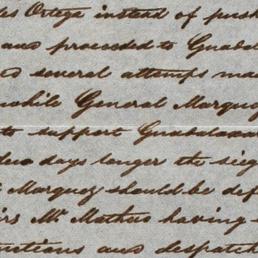 les Ortega instead of push
and proceeded to Guadal
to several attemps ma
while General Marquez
to support Guadalaxa
days longer the sieg
Marquez should be def
Mr Mathew having
ctions and despatch